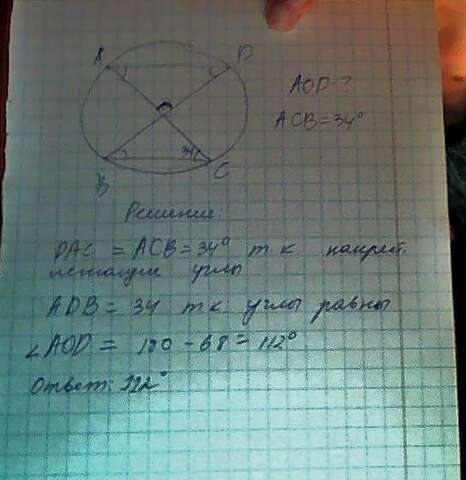 A D
AOD-?
ACB=34°
34°
B C
Решение:
DAC = ACB = 34° т к накрест.
лежащие углы
ADB = 34 т к углы равны
∠AOD = 180 - 68 = 112°
Ответ: 112°